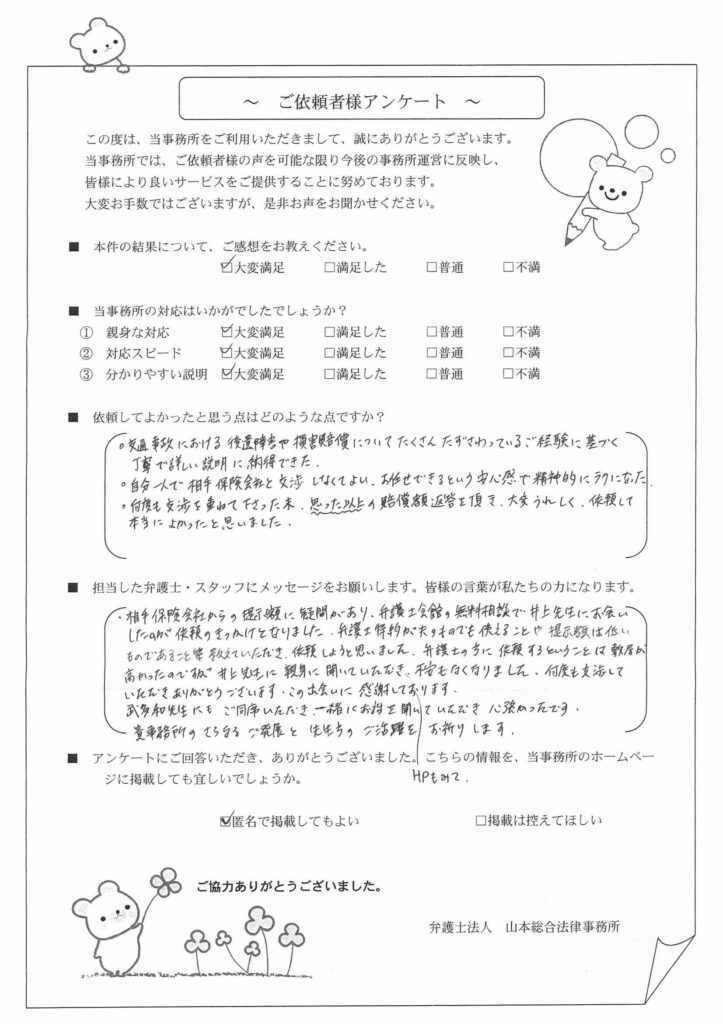 ～　ご依頼者様アンケート　～
この度は、当事務所をご利用いただきまして、誠にありがとうございます。
当事務所では、ご依頼者様の声を可能な限り今後の事務所運営に反映し、
皆様により良いサービスをご提供することに努めております。
大変お手数ではございますが、是非お声をお聞かせください。
■　本件の結果について、ご感想をお教えください。
☑大変満足　□満足した　□普通　□不満
■　当事務所の対応はいかがでしたでしょうか？
①　親身な対応　☑大変満足　□満足した　□普通　□不満
②　対応スピード　☑大変満足　□満足した　□普通　□不満
③　分かりやすい説明　☑大変満足　□満足した　□普通　□不満
■　依頼してよかったと思う点はどのような点ですか？
○交通事故における後遺障害や損害賠償についてたくさんたずさわっているご経験に基づく
丁寧で詳しい説明に納得できた．
○自分一人で相手保険会社と交渉しなくてよい、お任せできるという安心感で精神的にラクになった
○何度も交渉を重ねて下さった末、思った以上の賠償額返答を頂き、大変うれしく、依頼して
本当によかったと思いました．
■　担当した弁護士・スタッフにメッセージをお願いします。皆様の言葉が私たちの力になります。
・相手保険会社からの提示額に疑問があり、弁護士会館の無料相談で井上先生にお会い
したのが依頼のきっかけとなりました．弁護士特約が夫のものでも使えることや提示額は低い
ものであること等教えていただき、依頼しようと思いました．弁護士の方に依頼するということは敷居が
高かったのですが井上先生に親身に聞いていただき、不安もなくなりました．何度も交渉して
いただきありがとうございます．この出会いに感謝しております．
武多和先生にもご同席いただき、一緒にお話を聞いていただき心強かったです．
貴事務所のさらなるご発展と先生方のご活躍をお祈りします．
HPもみて．
■　アンケートにご回答いただき、ありがとうございました。こちらの情報を、当事務所のホームペー
ジに掲載しても宜しいでしょうか。
☑匿名で掲載してもよい　□掲載は控えてほしい
ご協力ありがとうございました。
弁護士法人　山本総合法律事務所